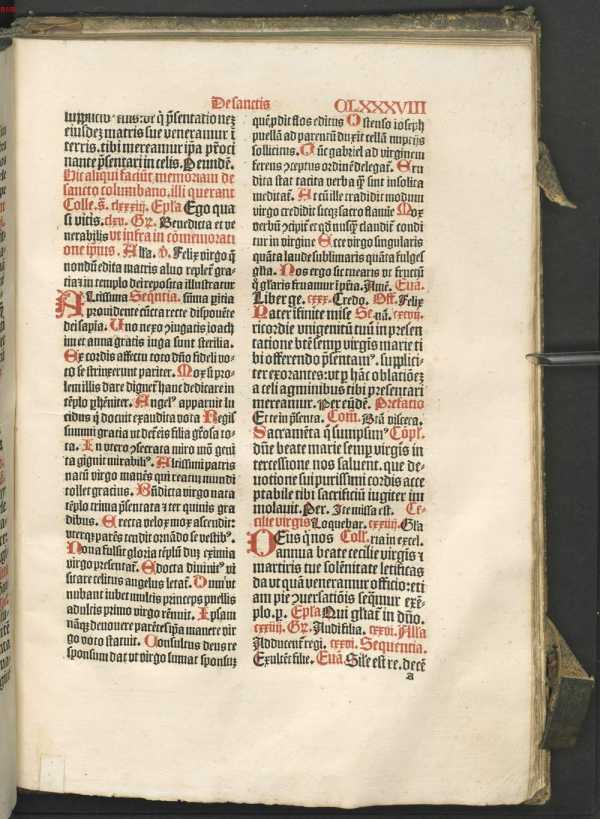 De sanctis CLXXXVIII
supplicio tuis: vt q̄ p̄sentationez
eiusdez matris sue veneramur ī
terris. tibi mereamur ip̄a p̄roci
nante p̄sentari in celis. Per eundē.
Hic aliqui faciūt memoriam de
sancto columbano. illi querant
Colle. s̄. clxxxiij. Ep̄la Ego qua
si vitis. clxv. Gr̄. Benedicta et ve
nerabilis vt infra in cōmemorati
one ip̄ius. Alla. v̄. Felix virgo q̄
nondū edita matris aluo replet̄ gra
tia: in templo dei reposita illustratur
Altissima Seqn̄tia. sūma p̄itia
prouidente cūcta recte disponēte
dei sap̄ia. Uno nexo ꝯiugatis ioach
im et anna gratis iuga sunt sterilia.
Ex cordis affectu toto dn̄o fideli vo⸗
to se strinxerunt pariter. Mox si pro⸗
lem illis dare dignet̄ hanc dedicare in
tēplo p̄hēniter. Angelꝰ apparuit lu
cidus q̄ docuit exaudita vota Regis
summi gratia vt
ta. In vtero ꝯsecrata miro mō geni
ta gignit mirabilꝰ. Altissimi patris
natū virgo manēs q̄ reatū mundi
tollet gracius. Bn̄dicta virgo nata
tēplo trima p̄sentata ꝛ ter quinis gra
dibus. Erecta velox mox ascendit:
vterqꝫ parēs tendit ornādo se vestibꝰ.
Nona fulsit gloria tēplū dūꝫ eximia
virgo presentat̄. Edocta diuinitꝰ vi
sitare celitus angelus letat̄. Dum vt
nubant iubet multis princeps puellis
adultis primo virgo rēnuit. Ipsam
nāqꝫ denouere parētes ip̄a manere vir
go voto statuit. Consultus deus re
sponsum dat vt virgo sumat sponsuꝫ
quē ꝓdit flos editus Ostenso ioseph
puellā ad parentū duxit cellā nuptijs
sollicitus. Tūc gabriel ad virginem
ferens ꝯceptus ordinē delegat̄. Eru
dita stat tacita verba q̄ sint insolita
meditat̄. At cū ille tradidit modum
virgo credidit sicqꝫ sacro flamīe Mox
verbū ꝯcipit̄ et qd̄ nusqꝫ claudit̄ condi
tur in virgine Ecce virgo singularis
quāta laude sublimaris quāta fulges
glīa. Nos ergo sic tuearis vt fructū
q̄ gl̄aris fruamur ip̄ētia. Amē. Euā.
Liber ge. cxxx. Credo. Off. Felix
Pater ifinite mi[se] Se. nā. cxcvij.
ricordie vnigenitū tuū in presen
tatione btē semp̄ virgis marie ti
bi offerendo p̄sentamꝰ. suppliciter
exorantes: vt p̄ hāc oblatiōeꝫ
a celi agminibus tibi presentari
mereamur. Per eūdē. Prefatio
Et te in p̄senta. Com̄. Btā viscera.
Sacramēta q̄ sumpsimꝰ Cōpl̄.
dn̄e beate marie semp̄ virgis in
tercessione nos saluent. que de⸗
uotione sui purissimi cordis acce
ptabile tibi sacrificiū iugiter im
molauit. Per. Ite missa est. Ce⸗
cilie virgis Loquebar. cxxiij. Gl̄a
Deus q̄ nos Coll. ria in excel.
annua beate cecilie virgis ꝛ
martiris tue solēnitate letificas
da vt quā veneramur officio: eti
am pie ꝯuersatiōis seq̄mur exē⸗
plo. p̄. Ep̄la Qui gl̄iat̄ in dn̄o.
cxxiiij. Gr̄. Audi filia. cxxvi. Alla
Adducent̄ regi. cxxvi. Sequentia.
Exultēt filie. Euā. Sile est re. decē
a